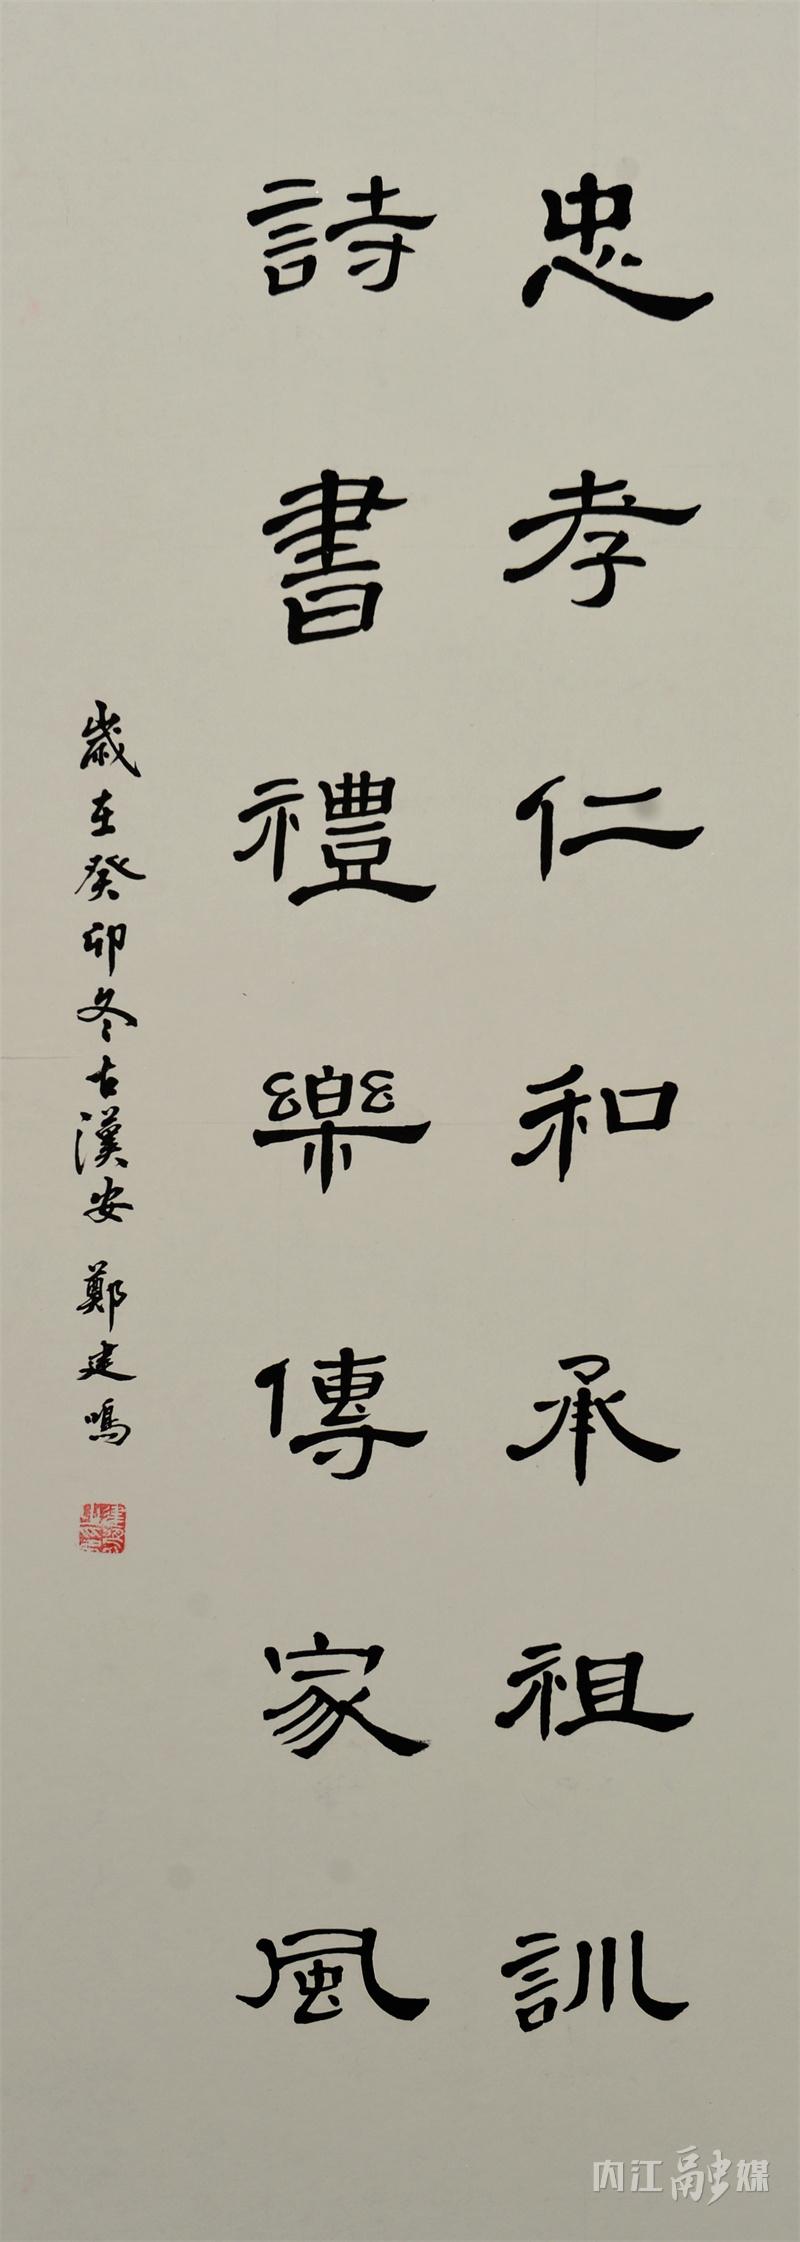 忠孝仁和承祖訓
詩書禮樂傳家風
歲在癸卯冬古漢安 鄭建鳴
内江融媒